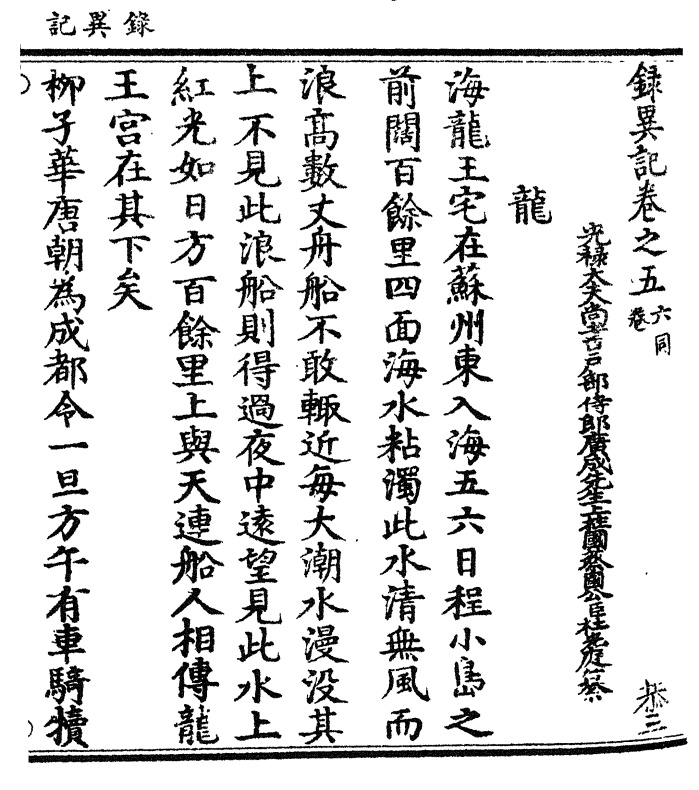 錄異記
録異記卷之五 六同卷 恭三
光禄大夫尚書户部侍郎廣成先生上柱國蔡國公臣杜光庭纂
龍
海龍王宅在蘇州東入海五六日程小島之
前闊百餘里四面海水粘濁此水清無風而
浪高數丈舟船不敢輙近每大潮水漫没其
上不見此浪船則得過夜中遠望見此水上
紅光如日方百餘里上與天連船人相傳龍
王宫在其下矣
柳子華唐朝為成都令一旦方午有車騎犢